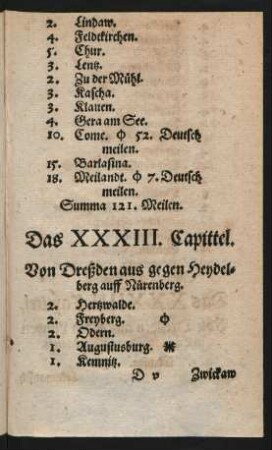 2. Lindaw.
4. Feldtkirchen.
5. Chur.
3. Lentz.
2. Zu der Mühl.
3. Kascha.
3. Klauen.
4. Gera am See.
10. Come. Φ 52. Deutsch
meilen.
15. Barlasina.
18. Meilandt. Φ 7. Deutsch
meilen.
Summa 121. Meilen.
Das XXXIII. Capittel.
Von Dreßden aus gegen Heydel-
berg auff Nürenberg.
2. Hertzwalde.
2. Freyberg. Φ
2. Odern.
1. Augustusburg. ⁕
1. Kemnitz.
D v Zwickaw